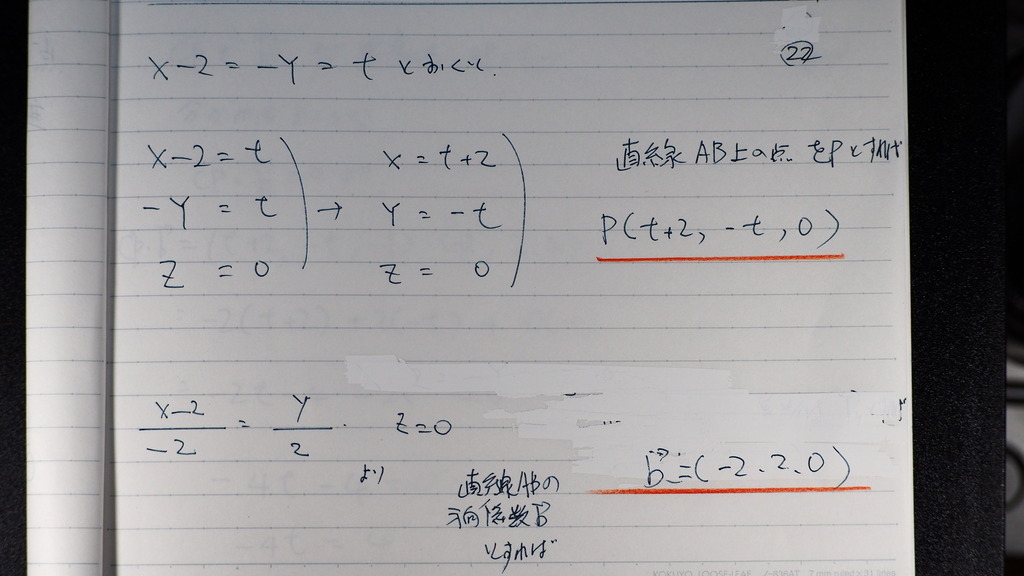 22
X-2 = -Y = t とおくと.
X-2 = t
-Y = t
Z = 0
→
X = t+2
Y = -t
Z = 0
直線 AB上の点 をPとすれば
P(t+2, -t, 0)
X-2/-2 = Y/2. Z=0
より
直線ABの
方向係数b
とすれば
b⃗=(-2.2.0)
KOKUYO LOOSE-LEAF
7 mm ruled × 31 lines